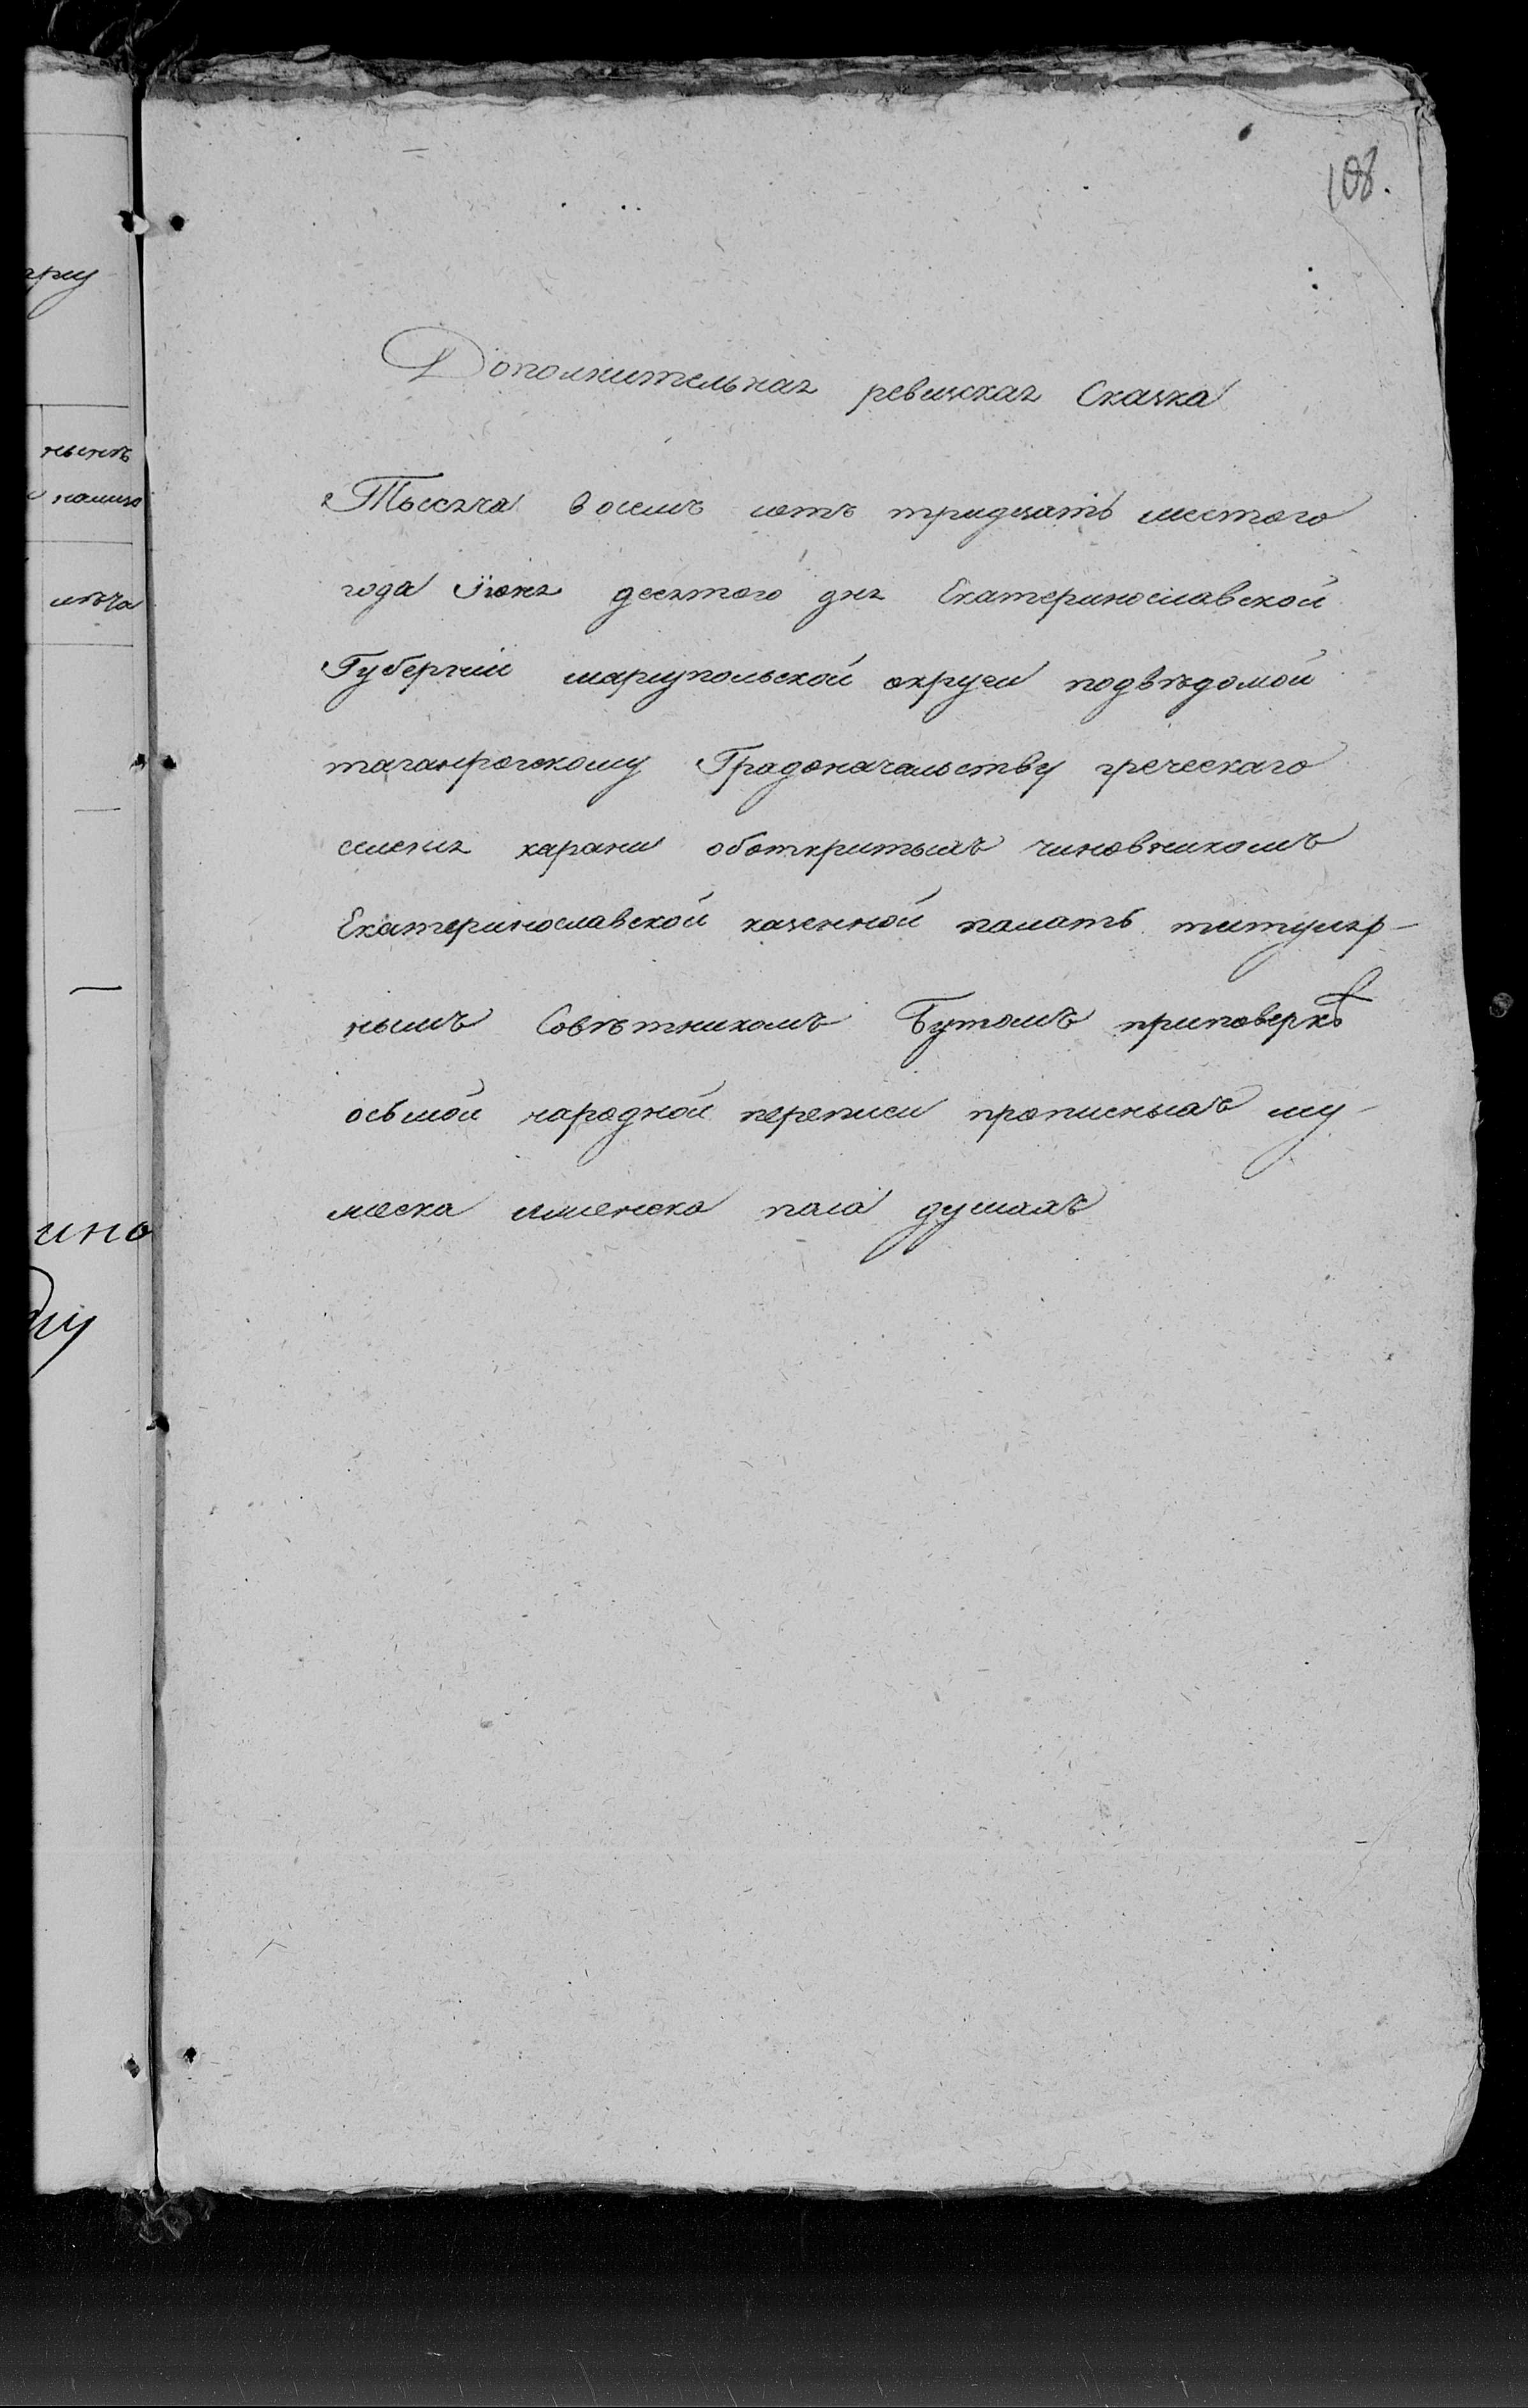 108.
Дополнительная ревизская Сказка
Тысяча восемь сотъ тридцать шестого
года Iюня десятого дня Екатеринославской
Губернiи мариупольской округи подвѣдомой
таганрогскому Градоначальству греческаго
селенiя карани оботкритыхъ чиновникомъ
Екатеринославской казенной палатѣ титуляр-
нымъ Совѣтникомъ Бутомъ приповеркѣ
осьмой народной переписи прописныхъ му-
жеска иженска пола душахъ
нынѣ
налицо
ино